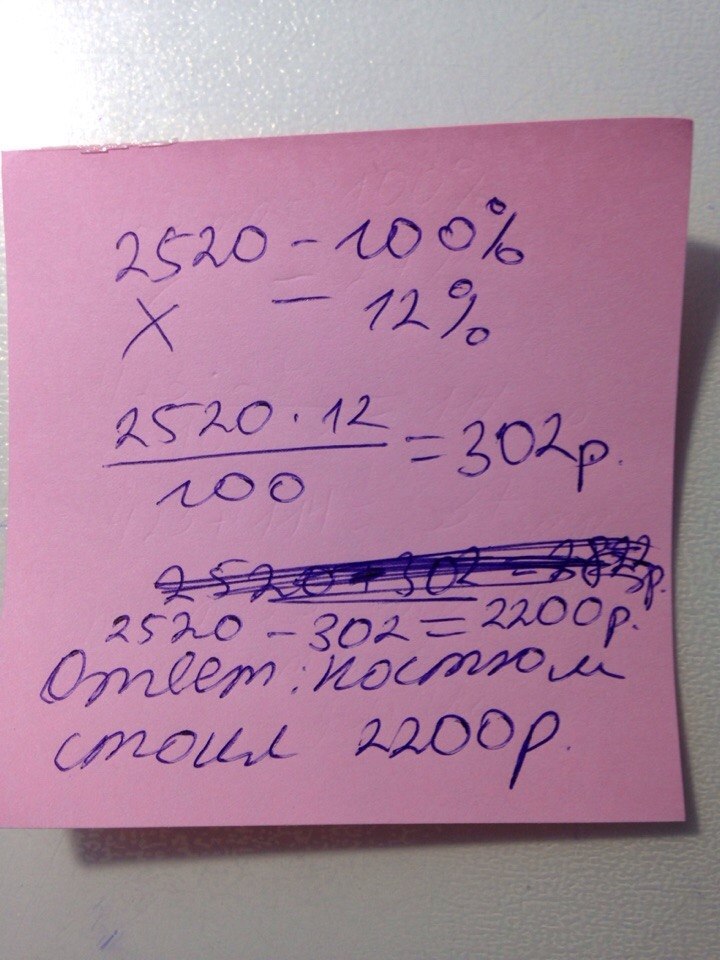 2520 - 100%
х - 12%
2520 · 12
100
= 302р.
2520 - 302 = 2200р.
Ответ: костюм
стоил 2200р.